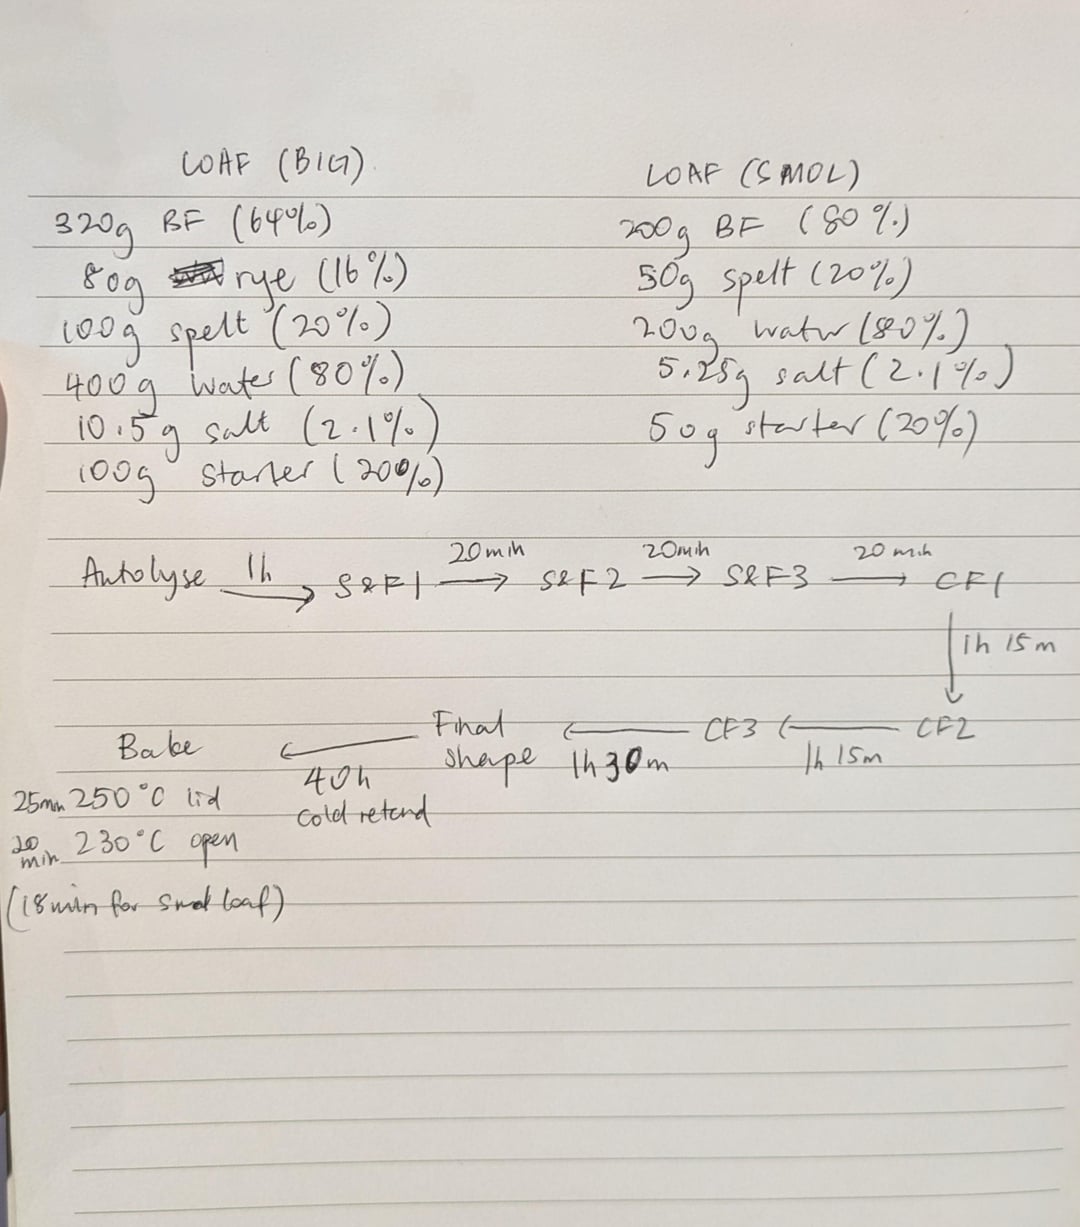 LOAF (BIG)
320g BF (64%)
80g rye (16%)
100g spelt (20%)
400g water (80%)
10.5g salt (2.1%)
100g starter (20%)
LOAF (SMOL)
200g BF (80%)
50g spelt (20%)
200g water (80%)
5.25g salt (2.1%)
50g starter (20%)
Autolyse 1h → S&F1 20min → S&F2 20min → S&F3 20min → CF1
↓ 1h 15m
Bake ← 40h cold retard Final shape ← 1h 30m CF3 ← 1h 15m CF2
25min 250°C lid
20 min 230°C open
(18min for smol loaf)